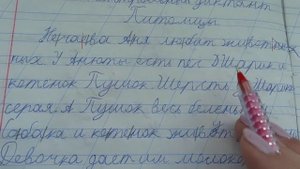 диктант
Питомцы
Аня любит животн
ных. У Анюты есть пёс Шарик и
котёнок Пушок. Шерсть у Шарика
серая. А Пушок весь беленький
собака и котёнок живут
Девочка даёт им молоко